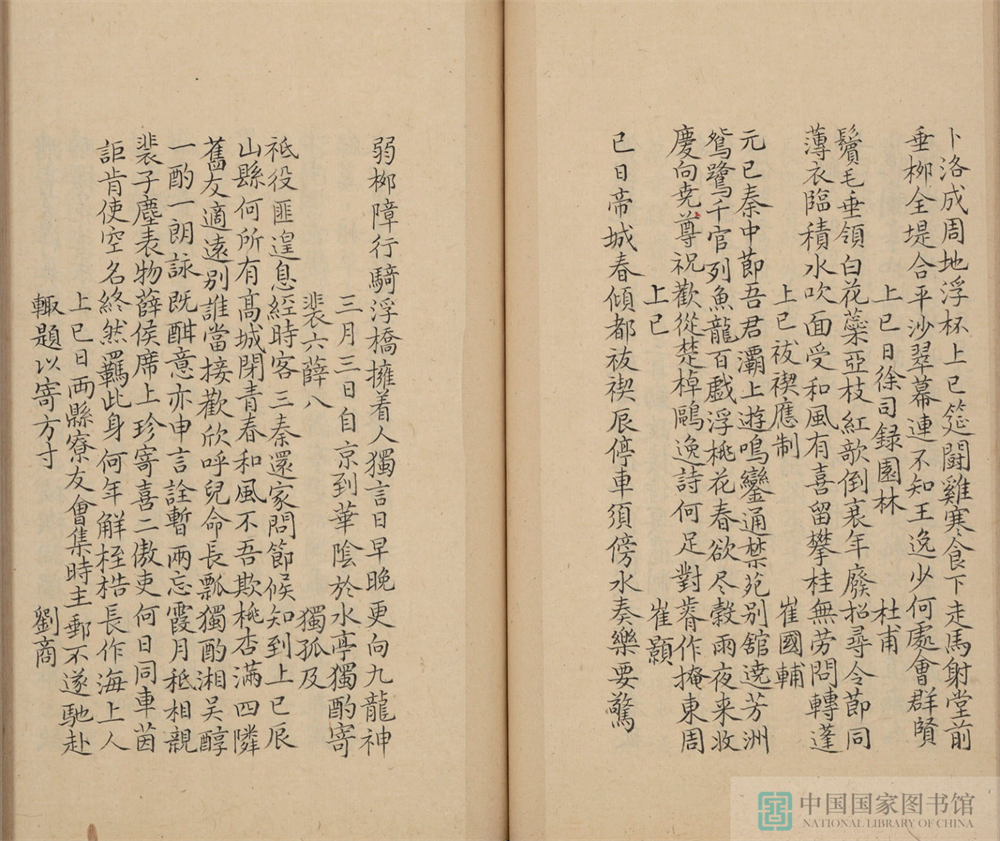 卜洛成周地浮杯上巳筵鬪雞寒食下走馬射堂前
垂柳全堤合平沙翠幕連不知王逸少何處會群賢
上巳日徐司録園林 杜甫
鬢毛垂領白花蘂亞枝紅歌倒衰年廢招尋令節同
薄衣臨積水吹面受和風有喜留攀桂無勞問轉蓬
上巳祓禊應制 崔國輔
元巳秦中節吾君灞上遊鳴鑾通禁苑别舘遶芳洲
鴛鷺千官列魚龍百戲浮桃花春欲尽穀雨夜来收
慶向尭尊祝歡從楚棹鷗逸詩何足對㫺作掩東周
上巳 崔顥
巳日帝城春傾都祓禊辰停車須傍水奏樂要驚
弱栁障行騎浮橋擁着人獨言日早晚更向九龍神
三月三日自京到華陰於水亭獨酌寄
裴六薛八 獨孤及
祗役匪遑息經時客三秦還家問節候知到上巳辰
山縣何所有高城閉青春和風不吾欺桃杏滿四隣
舊友適遠别誰當接歡欣呼兒命長瓢獨酌湘吴醇
一酌一朗詠既酣意亦申言詮暫兩忘霞月秪相親
裴子塵表物薛侯席上珍寄喜二傲吏何日同車茵
詎肯使空名終然羈此身何年解桎梏長作海上人
上巳日兩縣寮友會集時主郵不遂馳赴
輙題以寄方寸 劉商
中国国家图书馆
NATIONAL LIBRARY OF CHINA